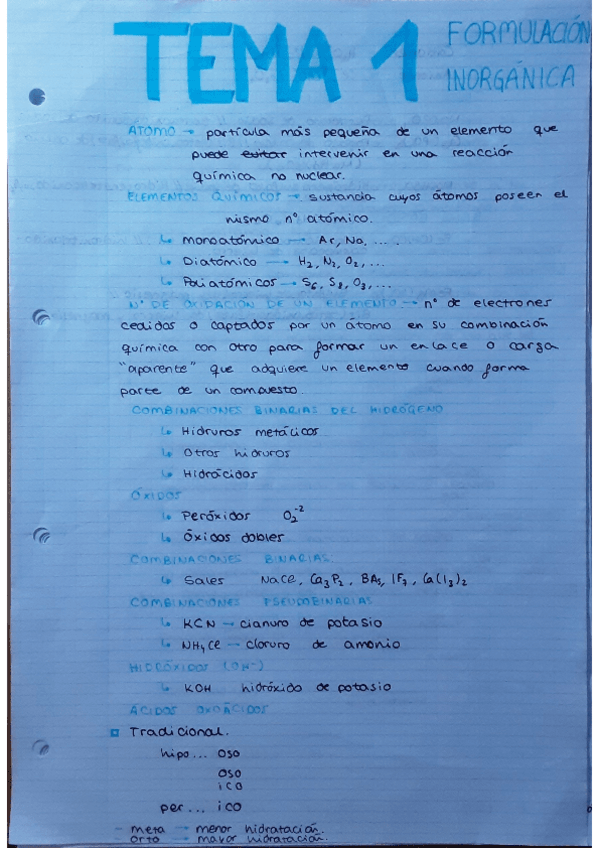 TEMA 1 FORMULACIÓN INORGÁNICA
ÁTOMO → partícula más pequeña de un elemento que
puede evitar intervenir en una reacción
química no nuclear.
ELEMENTOS QUÍMICOS → sustancia cuyos átomos poseen el
mismo nº atómico.
↳ Monoatómico → Ar, Na, ....
↳ Diatómico → H₂, N₂, O₂,...
↳ Poliatómicos → S₆, S₈, O₃,...
Nº DE OXIDACIÓN DE UN ELEMENTO → nº de electrones
cedidos o captados por un átomo en su combinación
química con otro para formar un enlace o carga
"aparente" que adquiere un elemento cuando forma
parte de un compuesto.
COMBINACIONES BINARIAS DEL HIDRÓGENO
↳ Hidruros metálicos
↳ Otros hidruros
↳ Hidrácidos
ÓXIDOS
↳ Peróxidos O₂⁻²
↳ Óxidos dobles
COMBINACIONES BINARIAS
↳ Sales NaCl, Ca₃P₂, BAs, IF₇, Ca(I₃)₂
COMBINACIONES PSEUDOBINARIAS
↳ KCN → cianuro de potasio
↳ NH₄Cl → cloruro de amonio
HIDRÓXIDOS (OH⁻)
↳ KOH hidróxido de potasio
ÁCIDOS OXOÁCIDOS
Tradicional.
hipo... oso
oso
ico
per... ico
- meta → menor hidratación.
- orto → mayor hidratación.